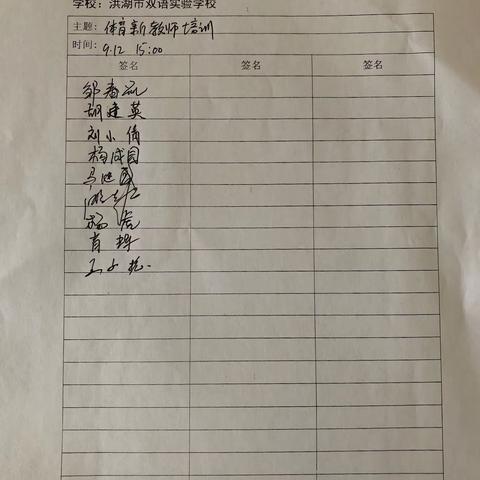 学校：洪湖市双语实验学校
主题：体育新教师培训
时间：9.12 15:00
签名 签名 签名
邹春
胡建英
刘小倩
杨成国
马
杨虎
肖
王